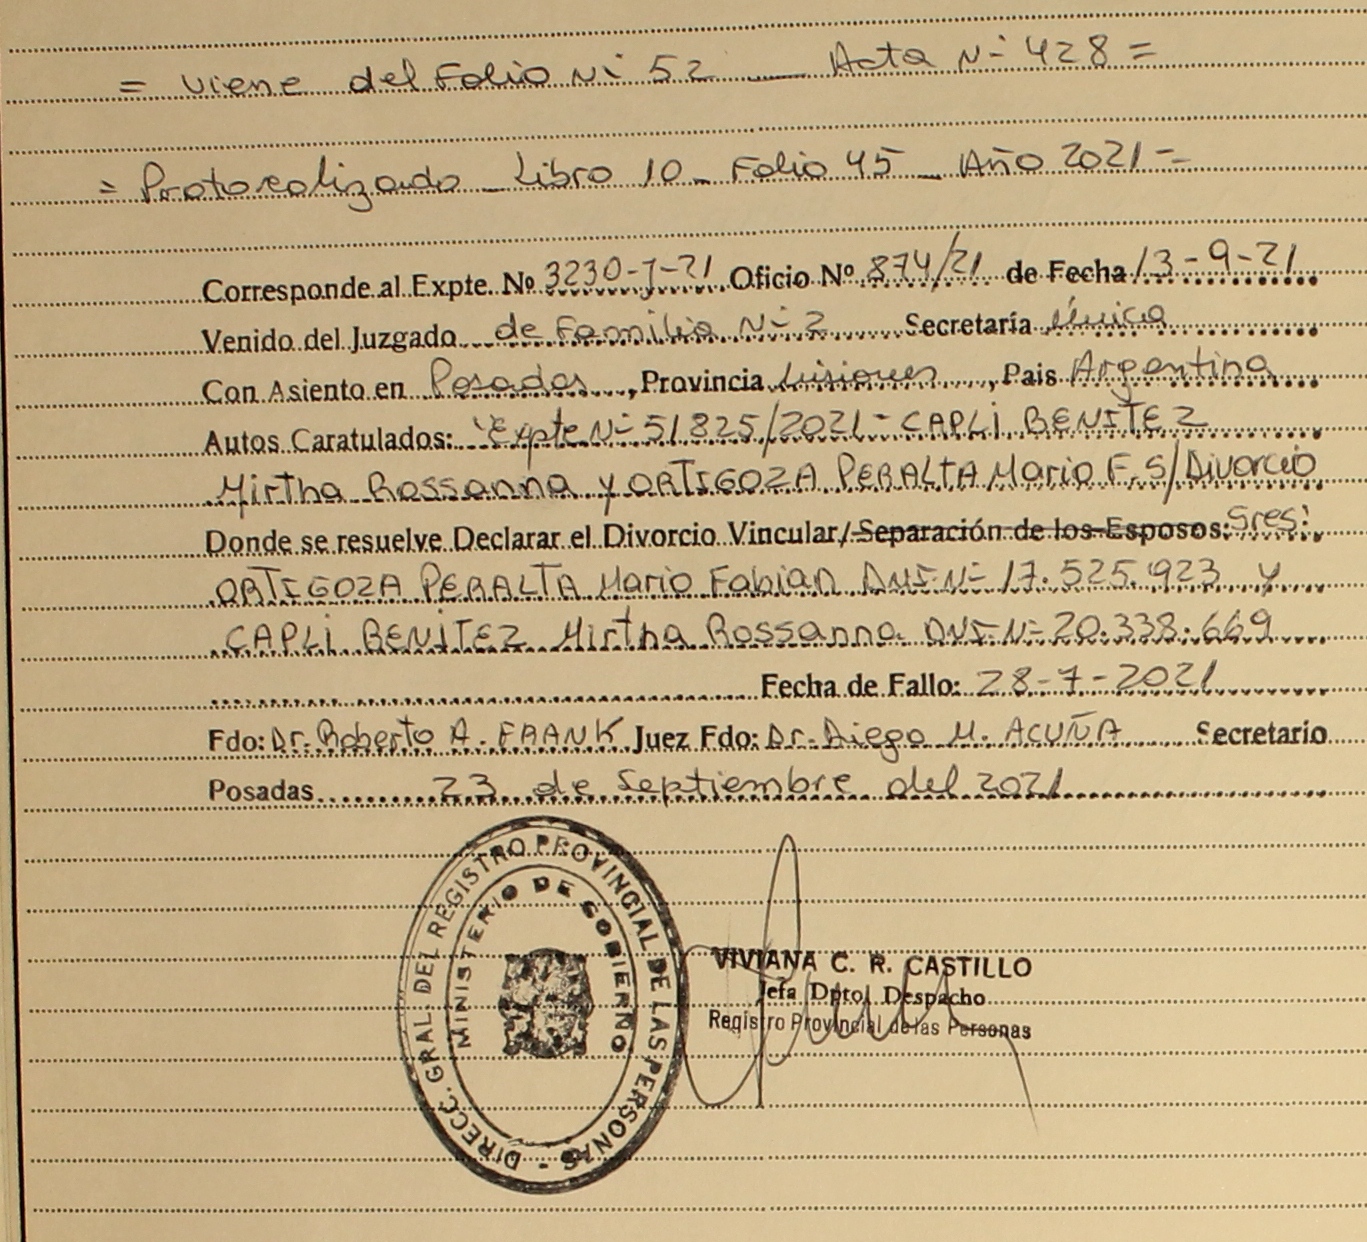 = Viene del Folio Nº 52 — Acta Nº 428 =
= Protocolizado – Libro 10 – Folio 45 – Año 2021 =
Corresponde al Expte. Nº 3230-J-21 Oficio Nº 874/21 de Fecha 13-9-21
Venido del Juzgado de Familia Nº 2 Secretaría Única
Con Asiento en Posadas, Provincia Misiones, Pais Argentina
Autos Caratulados: "Expte Nº 51825/2021 - CAPLI BENITEZ
Mirtha Rossanna y ORTIGOZA PERALTA Mario F. S/Divorcio
Donde se resuelve Declarar el Divorcio Vincular/Separación de los Esposos: Sres:
ORTIGOZA PERALTA Mario Fabian DNI Nº 17.525.923 y
CAPLI BENITEZ Mirtha Rossanna DNI Nº 20.338.669
Fecha de Fallo: 28-7-2021
Fdo: Dr. Roberto A. FRANK Juez Fdo: Dr. Diego M. ACUÑA Secretario
Posadas 23 de Septiembre del 2021
DIRECC. GRAL. DEL REGISTRO PROVINCIAL DE LAS PERSONAS -
MINISTERIO DE GOBIERNO
VIVIANA C. R. CASTILLO
Jefa Dpto. Despacho
Registro Provincial de las Personas